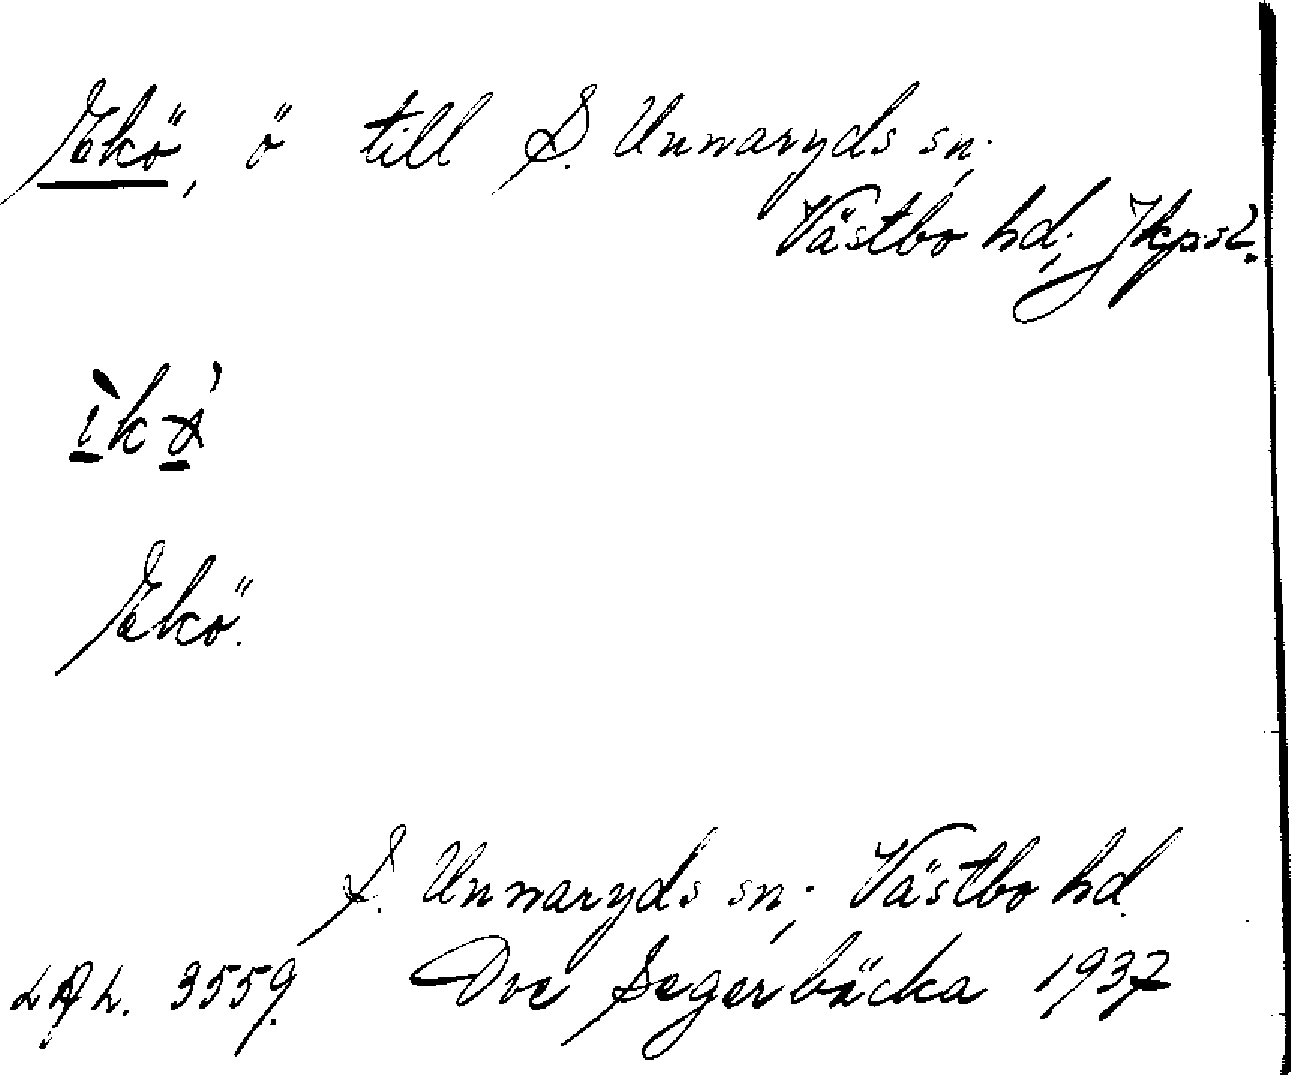 Ekö, ö till S. Unnaryds sn.,
Västbo hd., Jkpsl.
Ekö.
S. Unnaryds sn., Västbo hd.
LAL. 3559. Ove Segerbäcka 1937